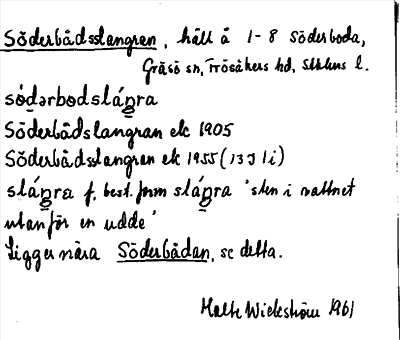 Söderbådsslangran, häll å 1-8 Söderboda,
Gräsö sn, Frösåkers hd, Sthlms l.
sö̀dərbodsláŋra
Söderbådslangran ek 1905
Söderbådsslangran ek 1955 (13J 1i)
sláŋra f. best. form sláŋra 'sten i vattnet
utanför en udde'
Ligger nära Söderbådan, se detta.
Malte Wickström 1961